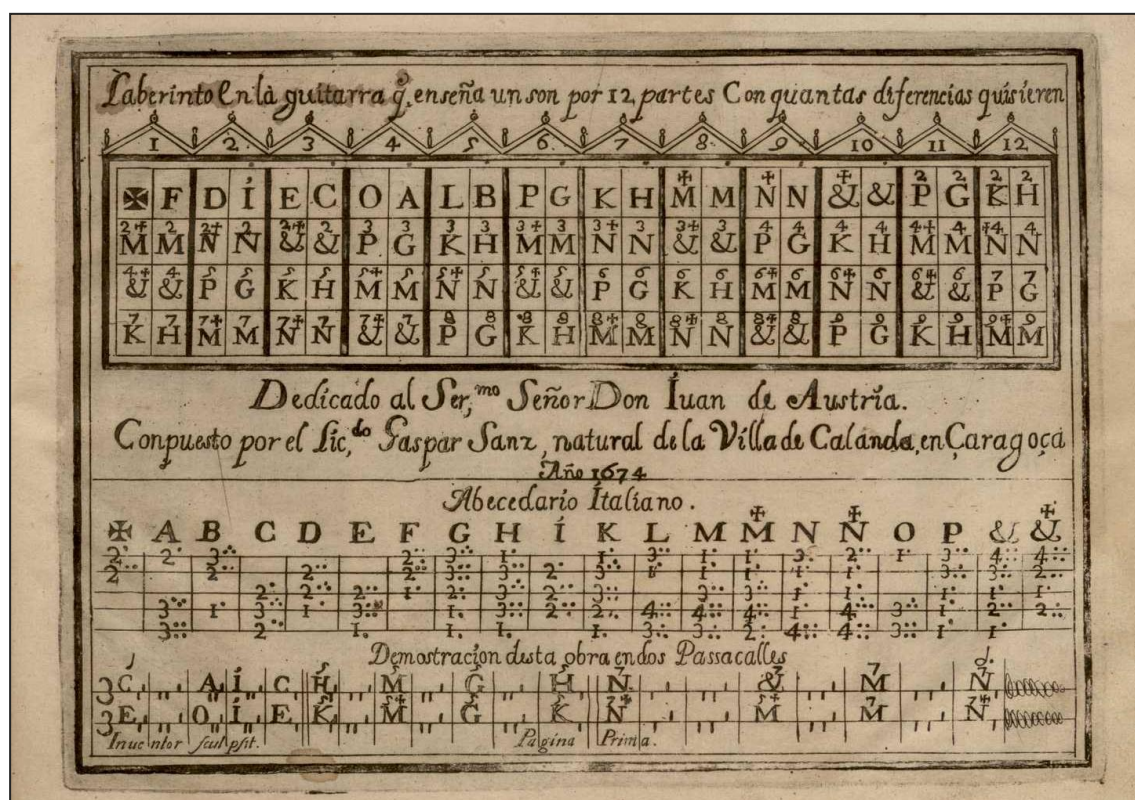 Laberinto En la guitarra q̃, enseña un son por 12, partes Con quantas diferencias quisieren
1 2 3 4 5 6 7 8 9 10 11 12
✠ F D Í E C O A L B P G K H M M N N & & P G K H
M M N N & & P G K H M M N N & & P G K H M M N N
& & P G K H M M N N & & P G K H M M N N & & P G
K H M M N N & & P G K H M M N N & & P G K H M M
Dedicado al Ser,mo Señor Don Íuan de Austria.
Conpuesto por el Lic,do Gaspar Sanz, natural de la Villa de Calanda, en Çaragoça
Año 1674
Abecedario Ítaliano.
✠ A B C D E F G H Í K L M M N N O P & &
Demostracion desta obra en dos Passacalles
C A Í C H M G H N & M N
E O Í E K M G K N M M N
Inuentor sculpsit. Pagina Prima.